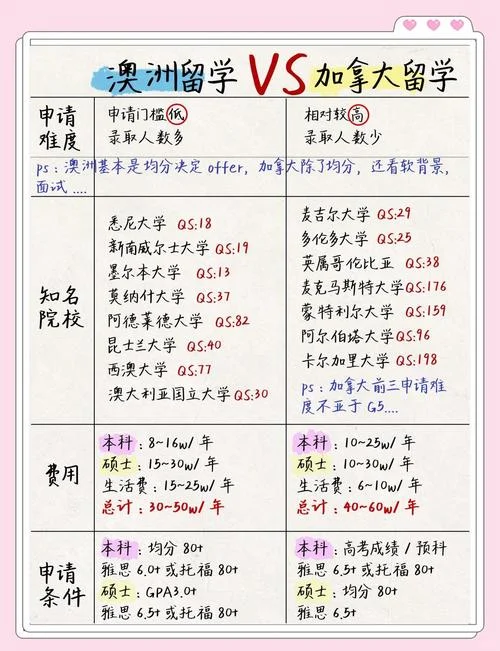 澳洲留学 VS 加拿大留学
申请难度
申请门槛低
录取人数多
相对较高
录取人数少
ps:澳洲基本是均分决定 offer,加拿大除了均分,还看软背景,
面试 ....
知名院校
悉尼大学 QS:18
新南威尔士大学 QS:19
墨尔本大学 QS:13
莫纳什大学 QS:37
阿德莱德大学 QS:82
昆士兰大学 QS:40
西澳大学 QS:77
澳大利亚国立大学 QS:30
麦吉尔大学 QS:29
多伦多大学 QS:25
英属哥伦比亚 QS:38
麦克马斯特大学 QS:176
蒙特利尔大学 QS:159
阿尔伯塔大学 QS:96
卡尔加里大学 QS:198
ps:加拿大前三申请难
度不亚于 G5....
费用
本科:8~16w/ 年
硕士:15~30w/ 年
生活费:15~25w/ 年
总计:30~50w/ 年
本科:10~25w/ 年
硕士:10~30w/ 年
生活费:6~10w/ 年
总计:40~60w/ 年
申请条件
本科:均分 80+
雅思 6.0+ 或托福 80+
硕士:GPA3.0+
雅思 6.5+ 或托福 80+
本科:高考成绩 / 预科
雅思 6.5+ 或托福 80+
硕士:均分 80+
雅思 6.5+